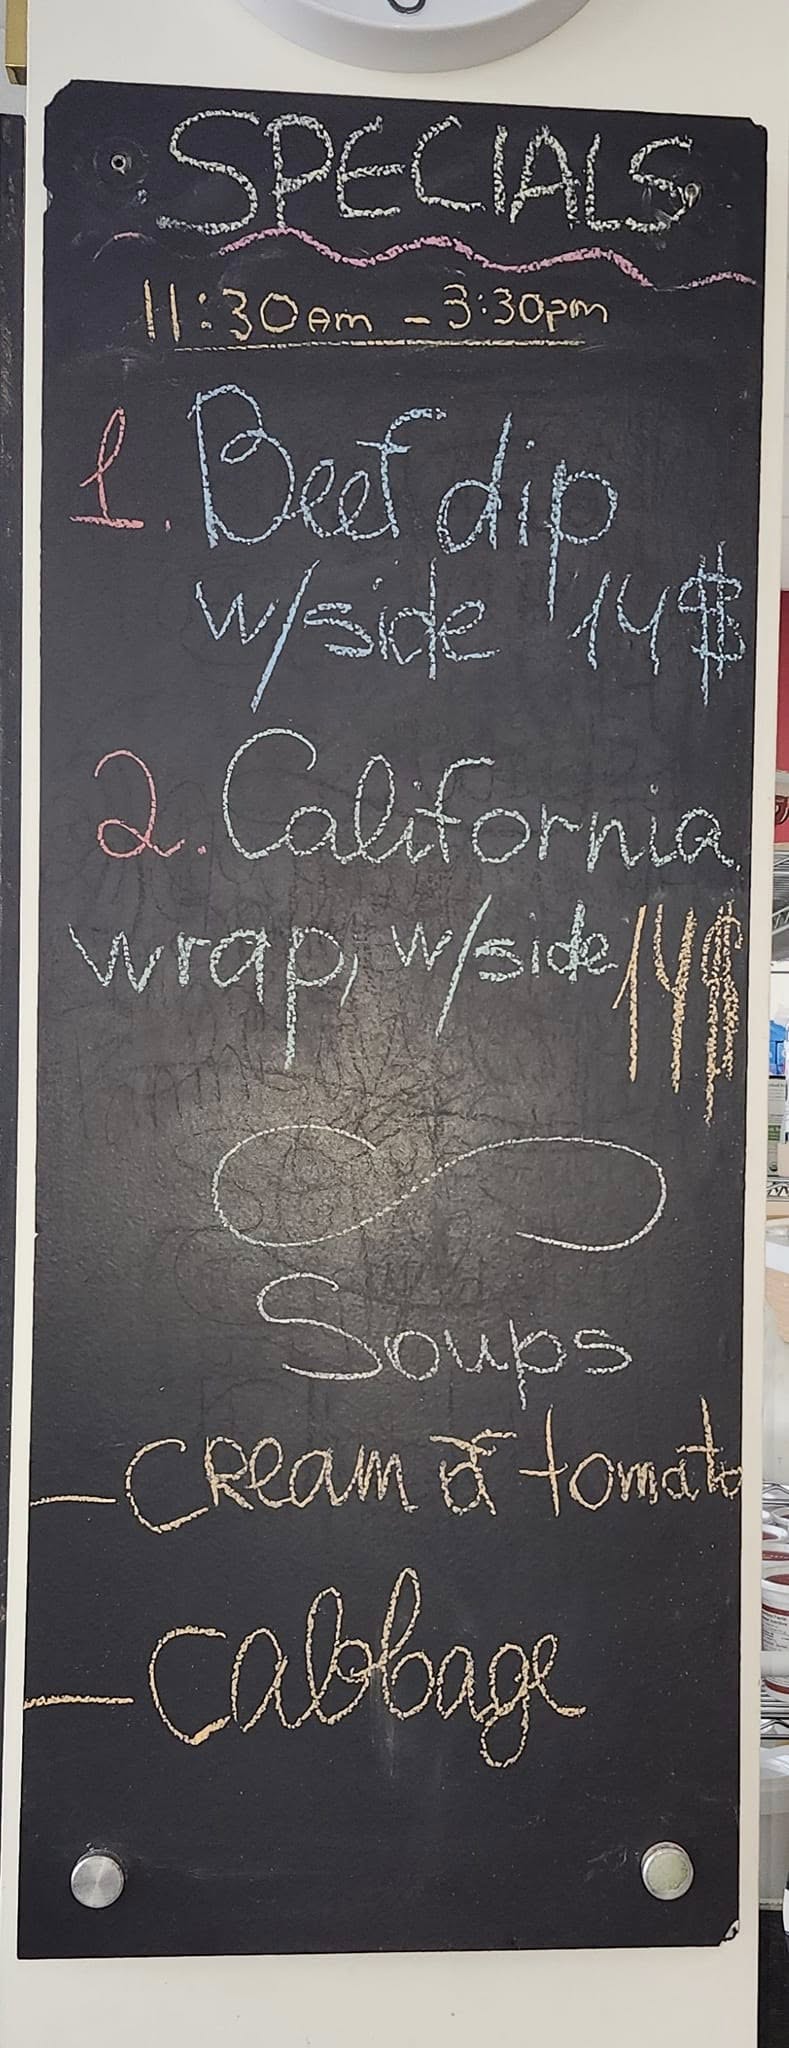 SPECIALS
11:30am - 3:30pm
1. Beef dip
w/side 14$
2. California
wrap, w/side 14$
Soups
- Cream of tomato
- Cabbage